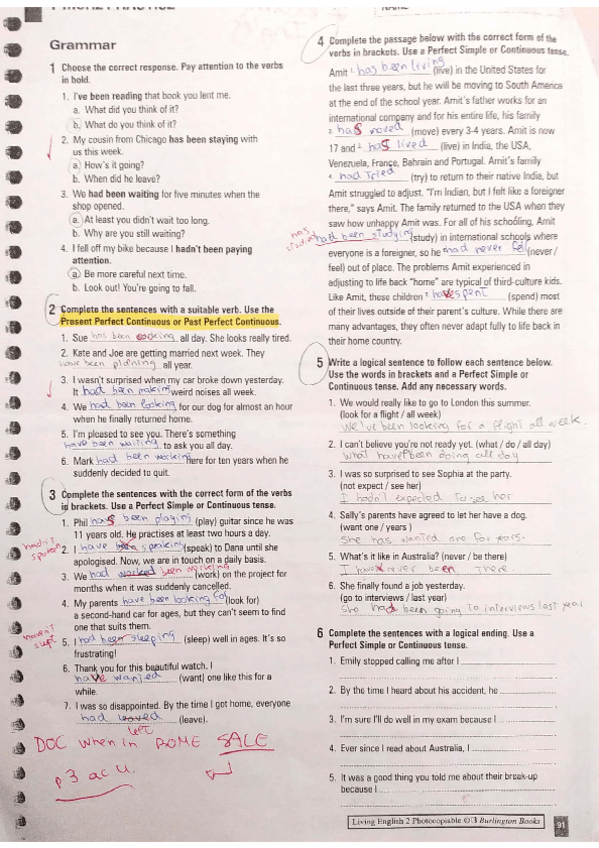 NAME
Grammar
1 Choose the correct response. Pay attention to the verbs
in bold.
1. I've been reading that book you lent me.
a. What did you think of it?
b. What do you think of it?
2. My cousin from Chicago has been staying with
us this week.
a. How's it going?
b. When did he leave?
3. We had been waiting for five minutes when the
shop opened.
a. At least you didn't wait too long.
b. Why are you still waiting?
4. I fell off my bike because I hadn't been paying
attention.
a. Be more careful next time.
b. Look out! You're going to fall.
2 Complete the sentences with a suitable verb. Use the
Present Perfect Continuous or Past Perfect Continuous.
1. Sue has been cooking all day. She looks really tired.
2. Kate and Joe are getting married next week. They
have been planning all year.
3. I wasn't surprised when my car broke down yesterday.
It had been making weird noises all week.
4. We had been looking for our dog for almost an hour
when he finally returned home.
5. I'm pleased to see you. There's something
I have been waiting to ask you all day.
6. Mark had been working here for ten years when he
suddenly decided to quit.
3 Complete the sentences with the correct form of the verbs
in brackets. Use a Perfect Simple or Continuous tense.
1. Phil has been playing (play) guitar since he was
11 years old. He practises at least two hours a day.
hadn't
spoken
2. I have been speaking (speak) to Dana until she
apologised. Now, we are in touch on a daily basis.
3. We had worked been working (work) on the project for
months when it was suddenly cancelled.
4. My parents have been looking for (look for)
a second-hand car for ages, but they can't seem to find
one that suits them.
haven't
slept
5. I had been sleeping (sleep) well in ages. It's so
frustrating!
6. Thank you for this beautiful watch. I
have wanted (want) one like this for a
while.
7. I was so disappointed. By the time I got home, everyone
had left (leave).
DOC When in ROME SALE
p 3 ac u.
4 Complete the passage below with the correct form of the
verbs in brackets. Use a Perfect Simple or Continuous tense.
Amit 1. has been living (live) in the United States for
the last three years, but he will be moving to South America
at the end of the school year. Amit's father works for an
international company and for his entire life, his family
2. has moved (move) every 3-4 years. Amit is now
17 and 3. has lived (live) in India, the USA,
Venezuela, France, Bahrain and Portugal. Amit's family
4. had tried (try) to return to their native India, but
Amit struggled to adjust. "I'm Indian, but I felt like a foreigner
there," says Amit. The family returned to the USA when they
saw how unhappy Amit was. For all of his schooling, Amit
has
had been studying (study) in international schools where
everyone is a foreigner, so he had never fel (never /
feel) out of place. The problems Amit experienced in
adjusting to life back "home" are typical of third-culture kids.
Like Amit, these children 7. have spent (spend) most
of their lives outside of their parent's culture. While there are
many advantages, they often never adapt fully to life back in
their home country.
5 Write a logical sentence to follow each sentence below.
Use the words in brackets and a Perfect Simple or
Continuous tense. Add any necessary words.
1. We would really like to go to London this summer.
(look for a flight / all week)
We've been looking for a flight all week.
2. I can't believe you're not ready yet. (what / do / all day)
What have been doing all day
3. I was so surprised to see Sophia at the party.
(not expect / see her)
I hadn't expected to see her
4. Sally's parents have agreed to let her have a dog.
(want one / years )
She has wanted one for years.
5. What's it like in Australia? (never / be there)
I have never been there.
6. She finally found a job yesterday.
(go to interviews / last year)
She had been going to interviews last year
6 Complete the sentences with a logical ending. Use a
Perfect Simple or Continuous tense.
1. Emily stopped calling me after I
2. By the time I heard about his accident, he
3. I'm sure I'll do well in my exam because I
4. Ever since I read about Australia, I
5. It was a good thing you told me about their break-up
because I
Living English 2 Photocopiable © Burlington Books
91